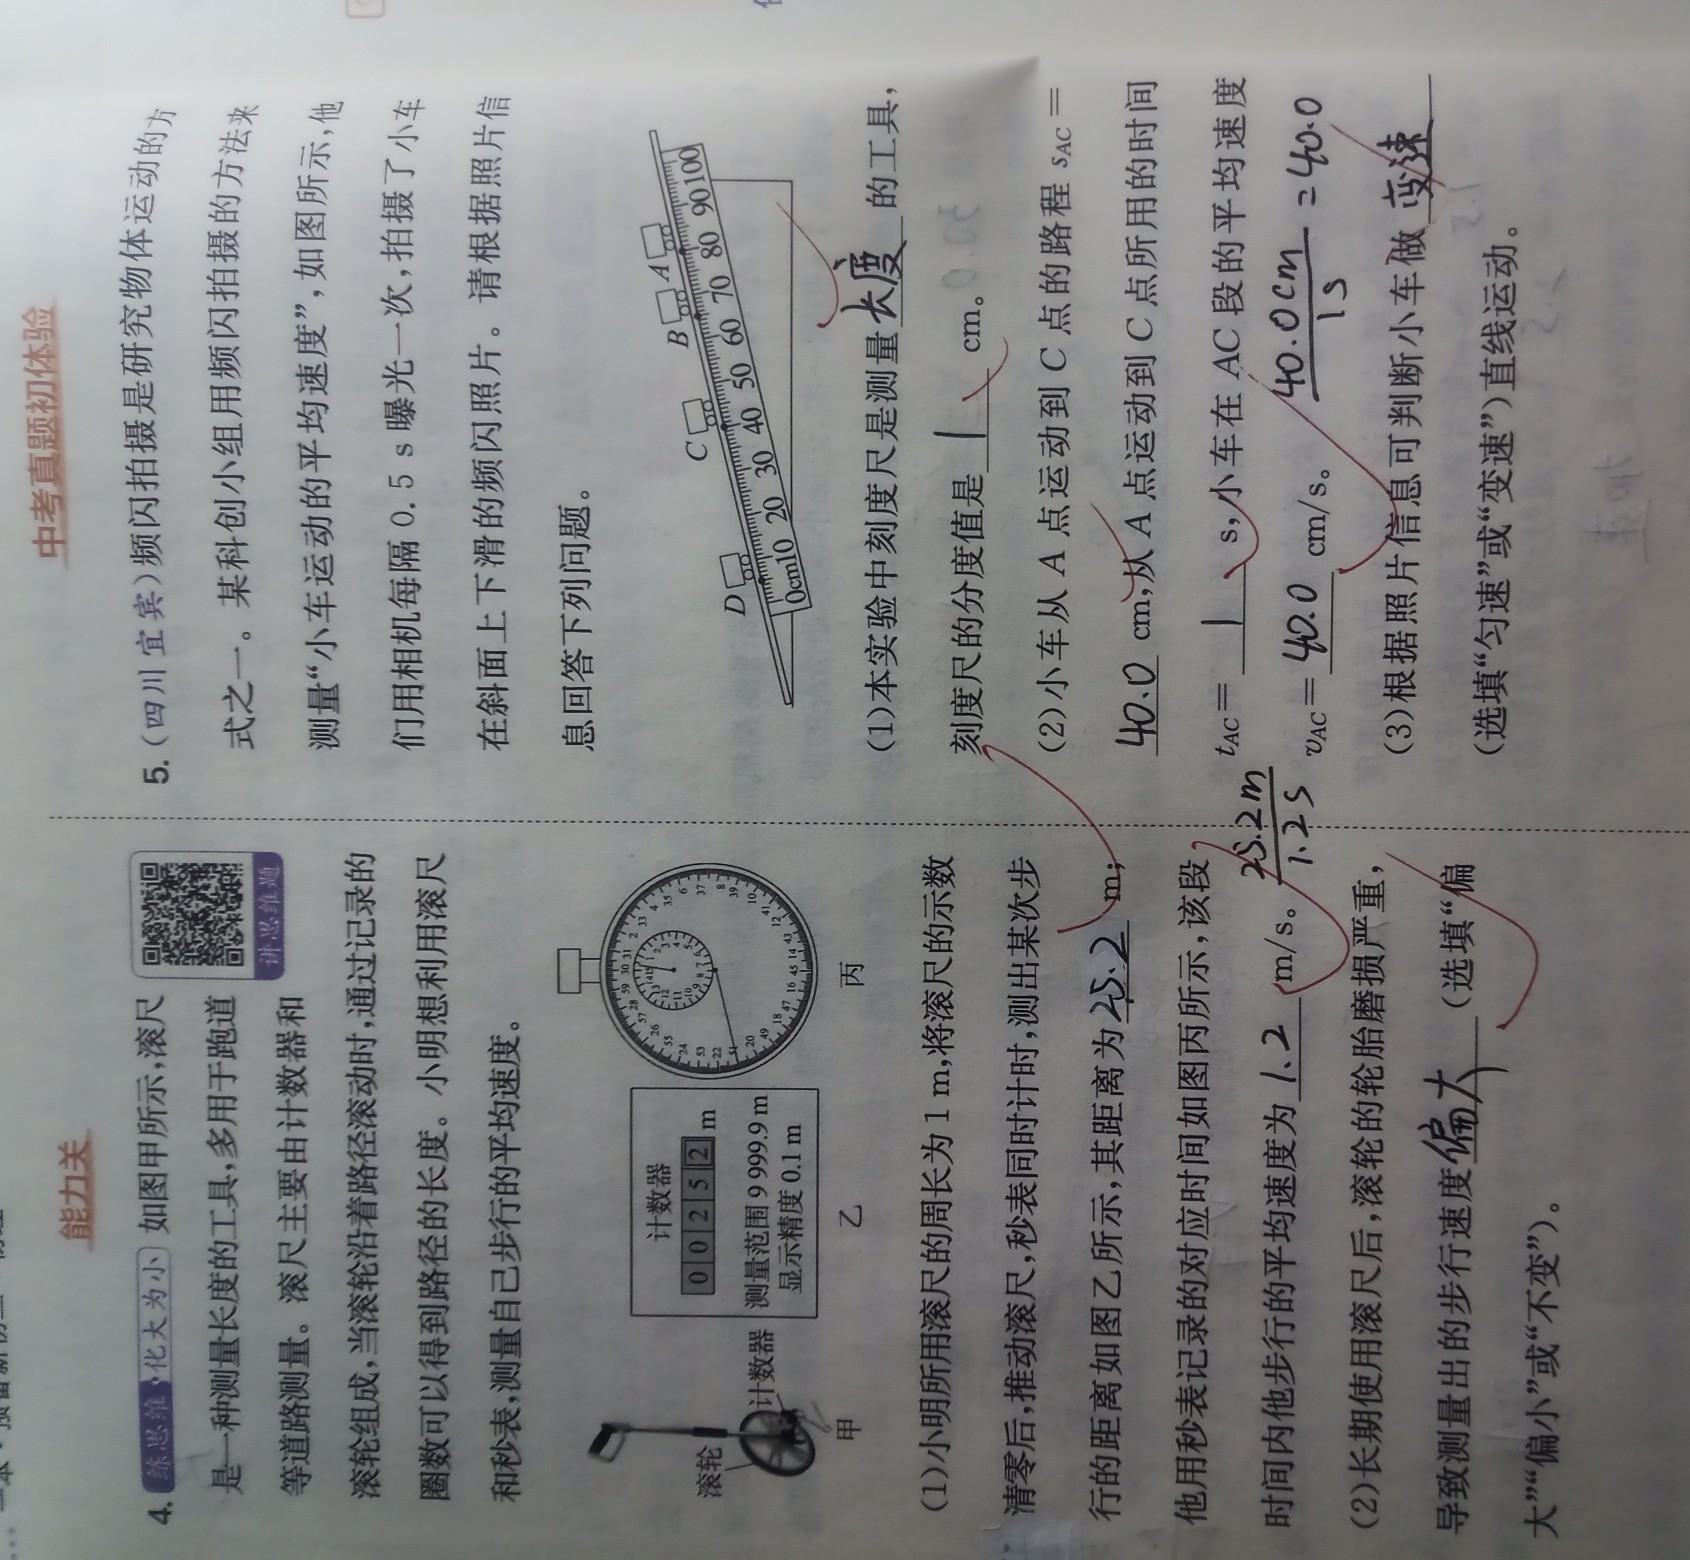 能力关
4. 练思维·化大为小 如图甲所示,滚尺
是一种测量长度的工具,多用于跑道
等道路测量。滚尺主要由计数器和
滚轮组成,当滚轮沿着路径滚动时,通过记录的
圈数可以得到路径的长度。小明想利用滚尺
和秒表,测量自己步行的平均速度。
讲思维题
滚轮
计数器
甲
计数器
0 0 2 5 2 m
测量范围9 999.9 m
显示精度 0.1 m
乙
丙
(1)小明所用滚尺的周长为 1 m,将滚尺的示数
清零后,推动滚尺,秒表同时计时,测出某次步
行的距离如图乙所示,其距离为 25.2 m;
他用秒表记录的对应时间如图丙所示,该段
时间内他步行的平均速度为 1.2 m/s。
25.2m
1.2s
(2)长期使用滚尺后,滚轮的轮胎磨损严重,
导致测量出的步行速度 偏大 (选填“偏
大”“偏小”或“不变”)。
中考真题初体验
5. (四川宜宾)频闪拍摄是研究物体运动的方
式之一。某科创小组用频闪拍摄的方法来
测量“小车运动的平均速度”,如图所示,他
们用相机每隔 0.5 s 曝光一次,拍摄了小车
在斜面上下滑的频闪照片。请根据照片信
息回答下列问题。
D C B A
0cm10 20 30 40 50 60 70 80 90 100
(1)本实验中刻度尺是测量 长度 的工具,
刻度尺的分度值是 1 cm。
(2)小车从 A 点运动到 C 点的路程 sAC=
40.0 cm,从 A 点运动到 C 点所用的时间
tAC= 1 s,小车在 AC 段的平均速度
vAC= 40.0 cm/s。
40.0cm
1s
=40.0
(3)根据照片信息可判断小车做 变速
(选填“匀速”或“变速”)直线运动。